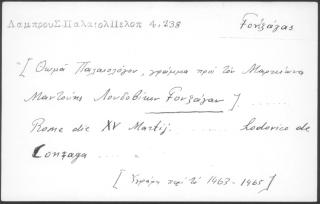 Λαμπρου Σ Παλαιολ Πελοπ 4.238
Γονζάγας
[ Θωμᾶ Παλαιολόγου, γράμμα πρὸ τὸν Μαρκίωνα
Μαντούης Λουδοβίκον Γονζάγαν ]. ......
Rome die XV Martij. ...... Lodovico de
Gonzaga .. .......
[ Ἐγράφη περὶ τὸ 1463-1465 ]